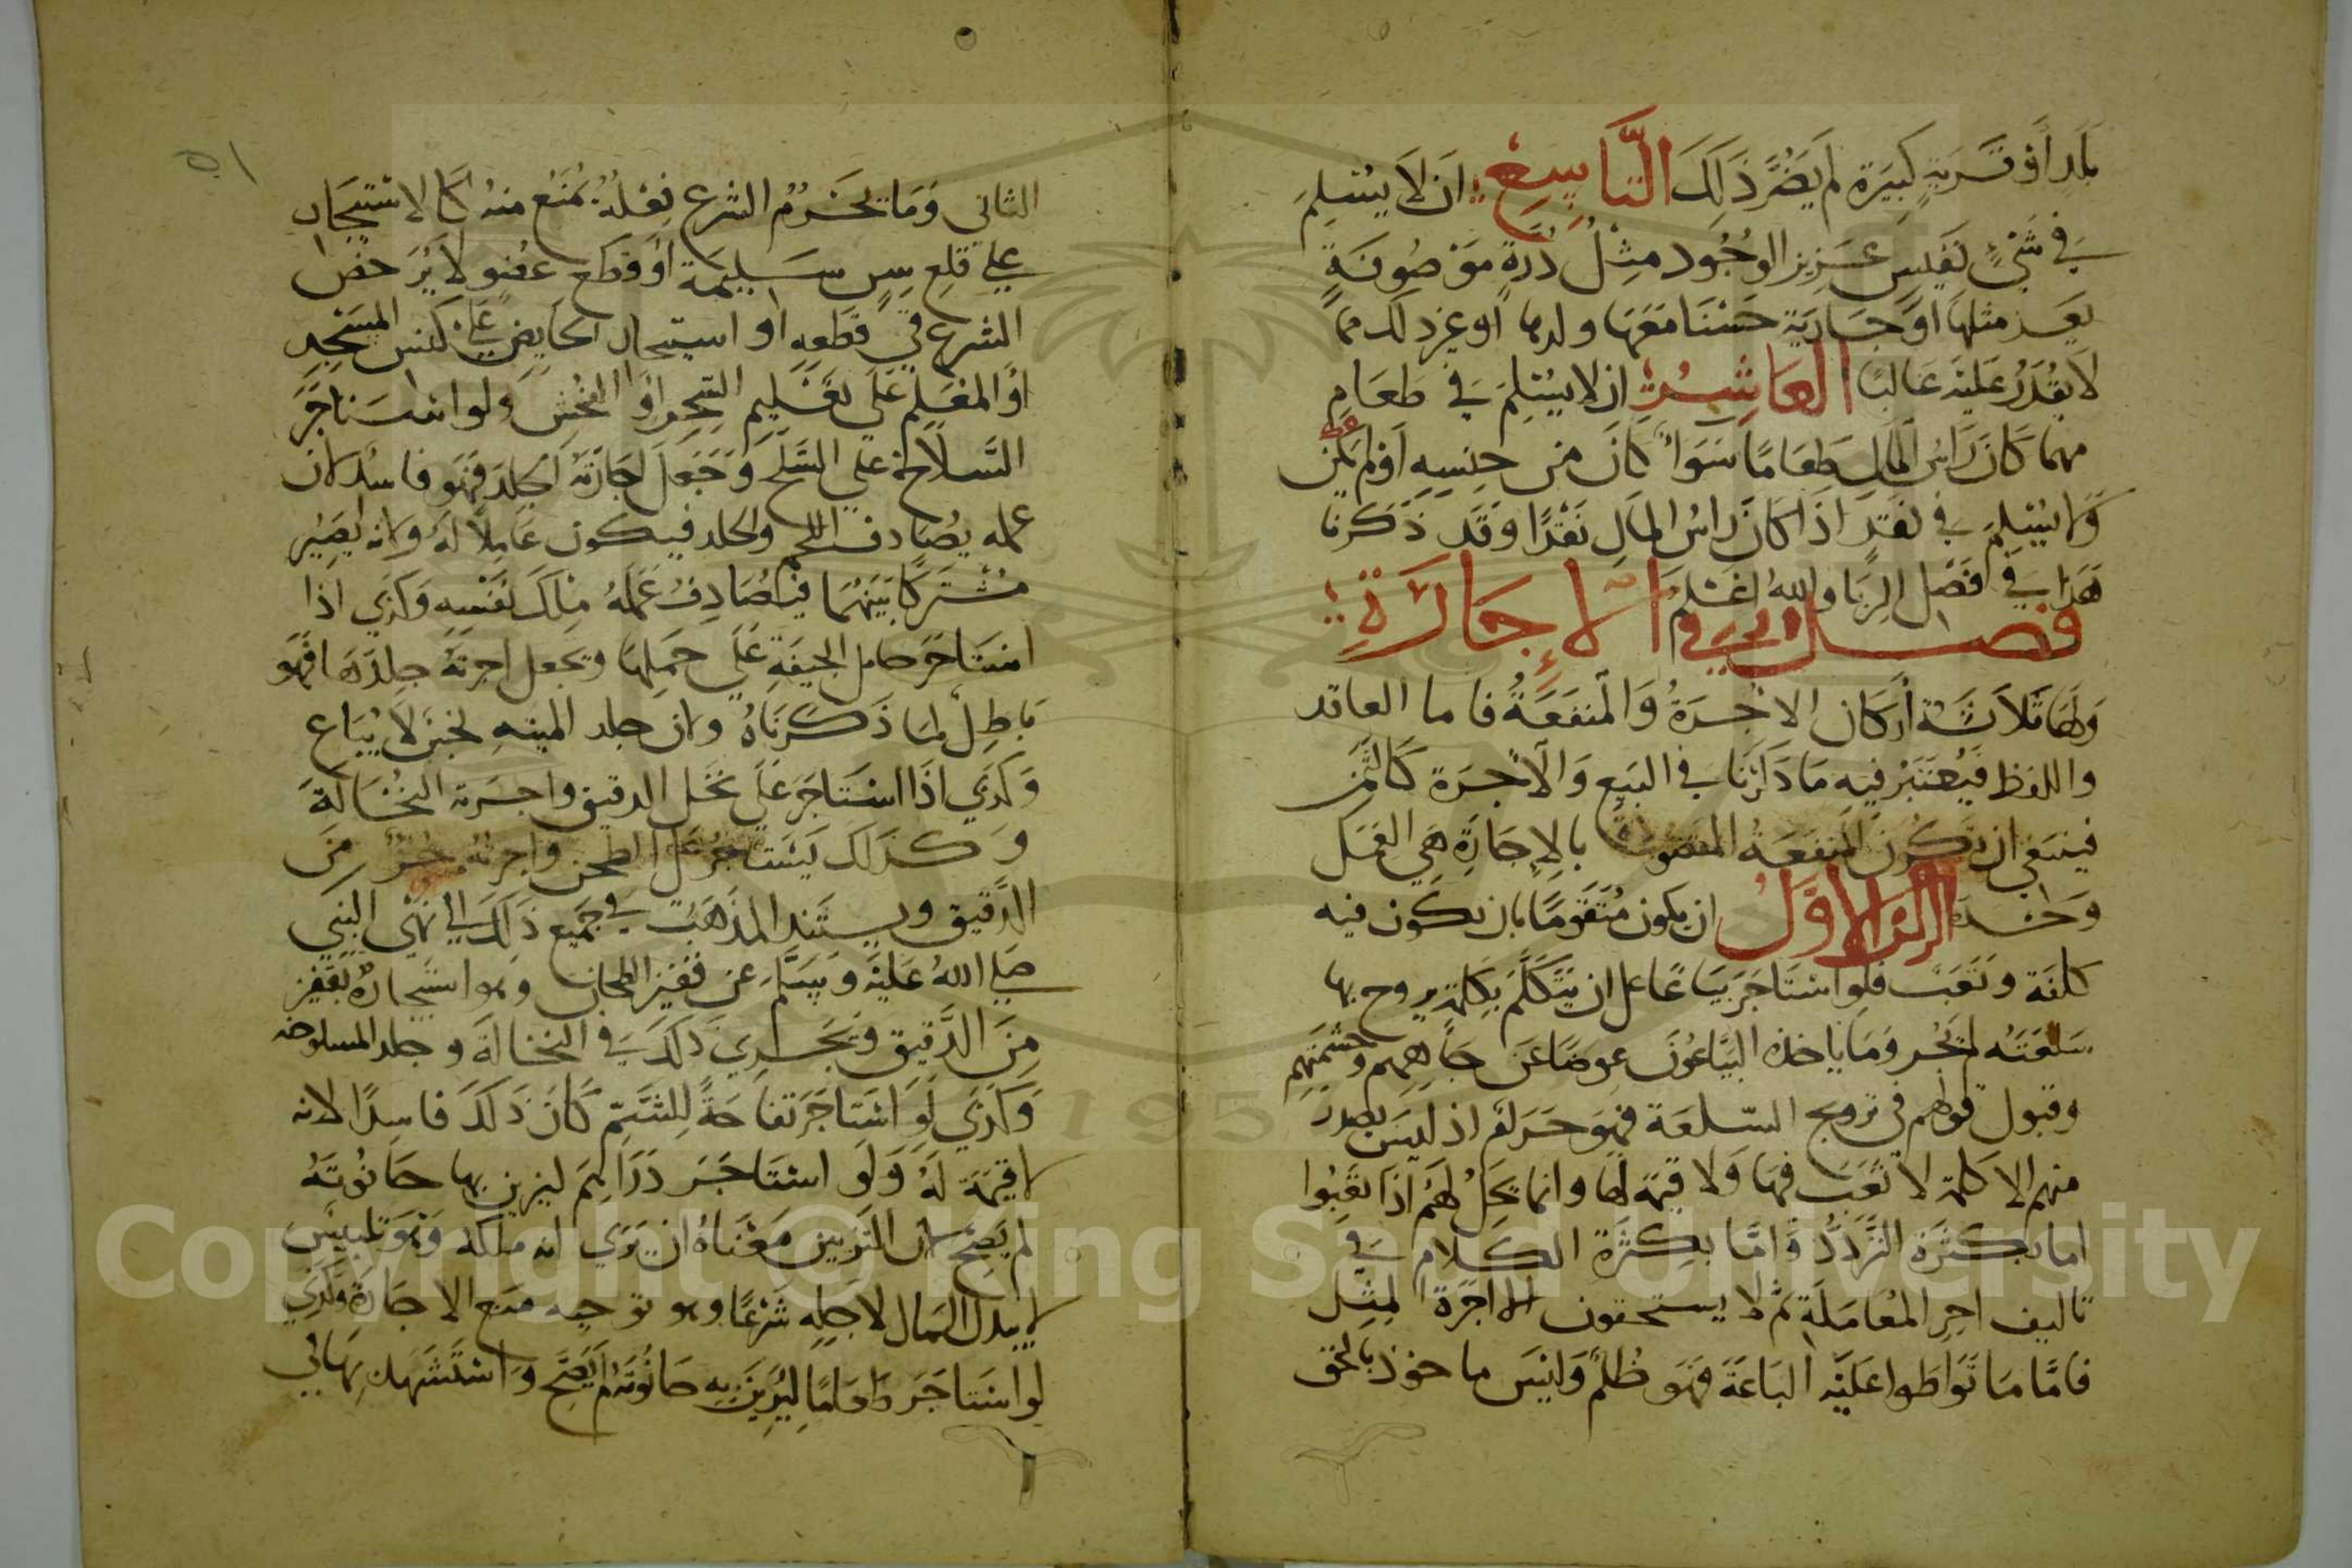 بلد أو قرية كبيرة لم يضر ذلك التاسع ان لا يسلم
في شيء نفيس عزيز الوجود مثل درة موصوفة
يعز مثلها او جارية حسنا معها ولدها او غير ذلك مما
لا يقدر عليه غالبا العاشر ان لا يسلم في طعام
مهما كان راس المال طعاما سوا كان من جنسه او لم يكن
ولا يسلم في نقد اذا كان راس المال نقدا وقد ذكرنا
هذا في فصل الربا والله اعلم
فصل في الإجارة
ولها ثلاثة أركان الاجرة والمنفعة فاما العاقد
واللفظ فيعتبر فيه ما ذكرنا في البيع والاجرة كالثمن
فينبغي ان تكون المنفعة المقصودة بالإجارة هي العمل
وحده الركن الاول ان يكون متقوما بان يكون فيه
كلفة وتعب فلو استاجر بياعا على ان يتكلم بكلمة يروج بها
سلعته لم يجز وما ياخذه البياعون عوضا عن جاههم وحشمتهم
وقبول قولهم في ترويج السلعة فهو حرام اذ ليس يصدر
منهم الا كلمة لا تعب فيها ولا قيمة لها وانما يحل لهم اذا تعبوا
اما بكثرة التردد واما بكثرة الكلام في
تاليف اجر المعاملة ثم لا يستحقون الا اجرة المثل
فاما ما تواطوا عليه الباعة فهو ظلم وليس ماخوذ بالحق
٥١
الثاني وما يحرم الشرع فعله يمنع منه كالاستيجار
على قلع سن سليمة او قطع عضو لا يرخص
الشرع في قطعه او استيجار الحايض على كنس المسجد
أو المعلم على تعليم السحر او الفحش ولو استاجر
السلاخ على السلخ وجعل اجارته الجلد فهو فاسد لان
عمله يصادف اللحم والجلد فيكون عاملا له ولانه يصير
مشتركا بينهما فيصادف عمله ملك نفسه وكذي اذا
استاجر حامل الجيفة على حملها وتجعل اجرته جلدها فهو
باطل لما ذكرناه ولان جلد الميته نجس لا يباع
وكذي اذا استاجر على نخل الدقيق واجرته النخالة
وكذلك يستاجر على الطحن واجرته جزء من
الدقيق ويستند المذهب في جميع ذلك الى نهي النبي
صلى الله عليه وسلم عن قفيز الطحان وهو استيجاره بقفيز
من الدقيق ويجري ذلك في النخالة وجلد المسلوخه
وكذي لو استاجر تفاحة للشم كان ذلك فاسدا لانه
لا قيمة له ولو استاجر دراهم ليزين بها حانوته
لم يصح لان التزيين معناه ان يري انه ملكه وهو تلبيس
لا يبذل المال لاجله شرعا وهو توجيه منع الاجارة وكذي
لو استاجر طعاما ليزين به حانوته لم يصح واستشهد بهاتي
Copyright © King Saud University
195